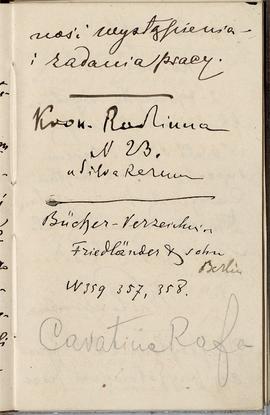 nosi wystąpienia
i zadania pracy.
Kron. Rodzinna
N 23.
u Silva Rerum
Bücher-Verzeichnis
Friedländer & Sohn
Berlin
N 359 357, 358.
Cavatina Rafa